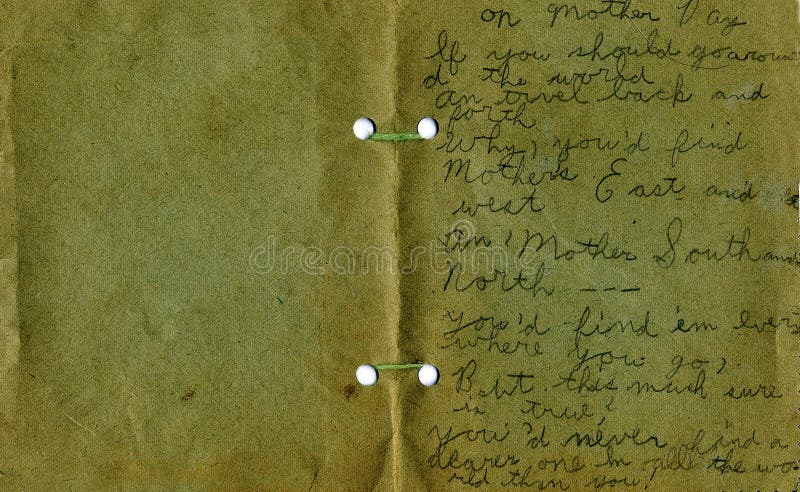 on Mother Day
If you should go aroun
d the world
an trvel back and
forth
Why, you'd find
Mothers East and
west
an' Mother South and
North ---
you'd find 'em every
where you go,
But this much sure
is true,
you'd never find a
dearer one in all the wo
rld than you!
dreamstime